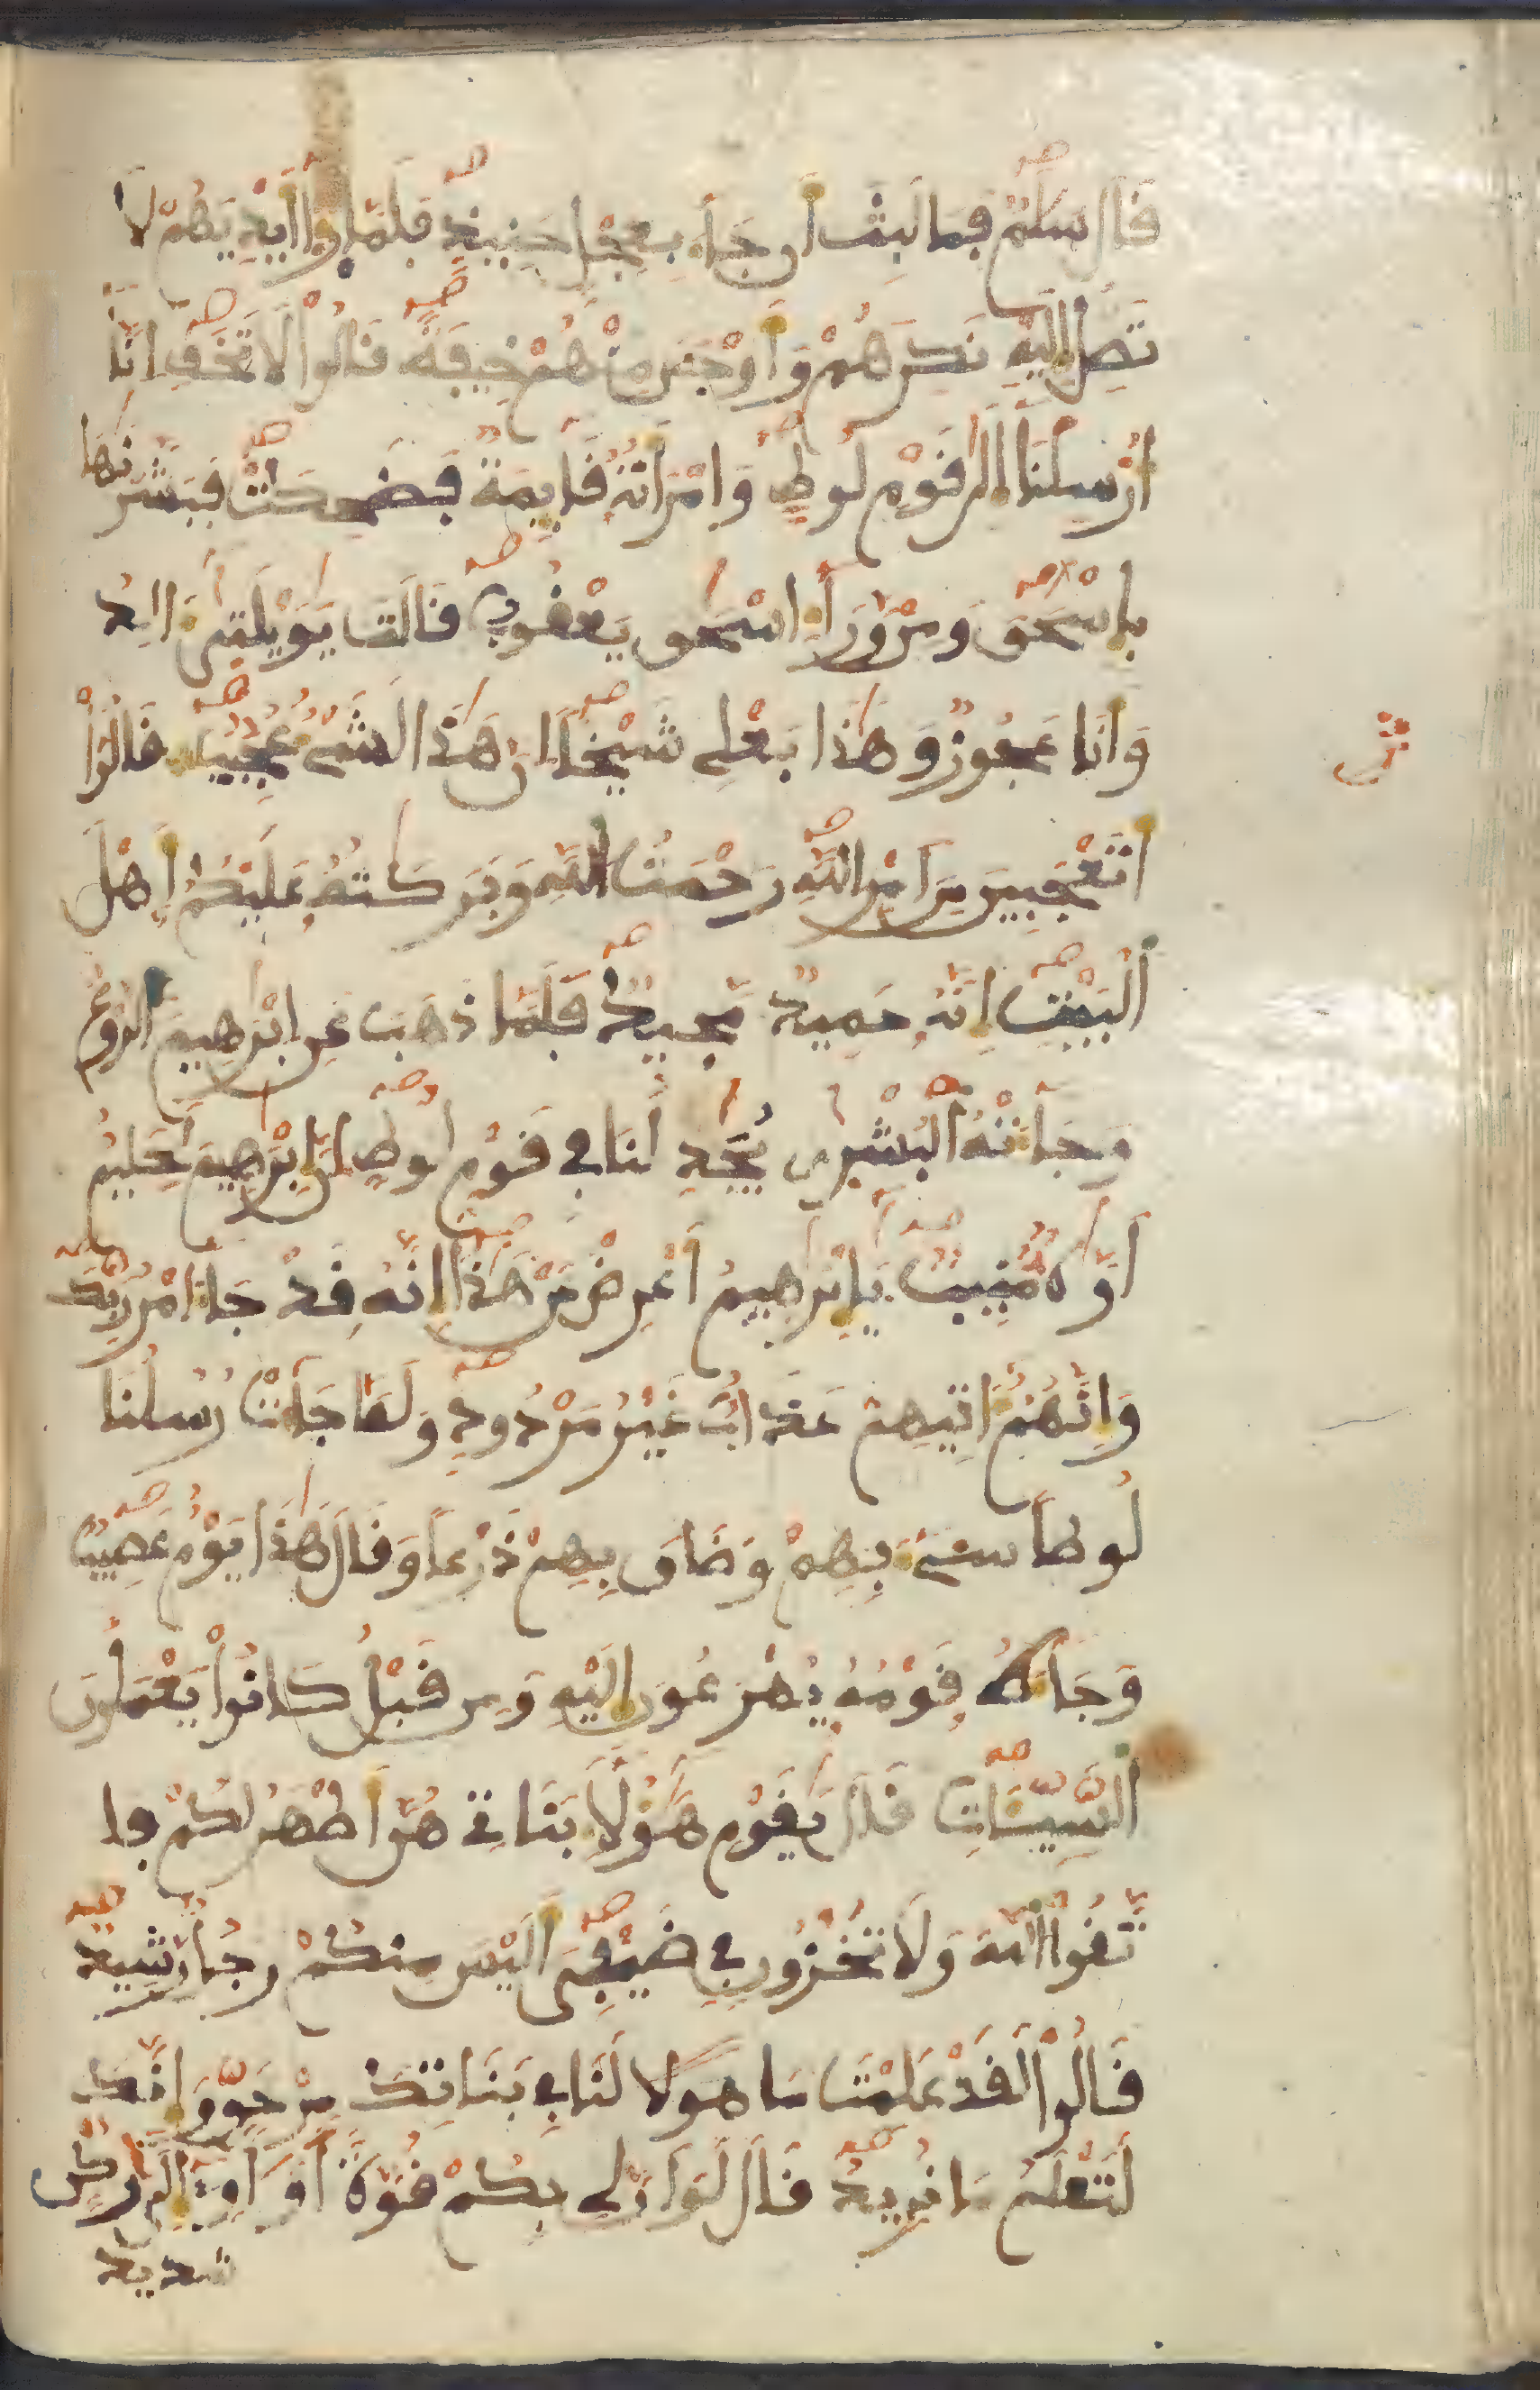 قَالَ سَلَٰمٌ فَمَا لَبِثَ أَن جَآءَ بِعِجْلٍ حَنِيذٍ فَلَمَّا رَءَآ أَيْدِيَهُمْ لَا
تَصِلُ إِلَيْهِ نَكِرَهُمْ وَأَوْجَسَ مِنْهُمْ خِيفَةً قَالُوا۟ لَا تَخَفِ إِنَّآ
أُرْسِلْنَآ إِلَىٰ قَوْمِ لُوطٍ وَامْرَأَتُهُ قَآئِمَةٌ فَضَحِكَتْ فَبَشَّرْنَٰهَا
بِإِسْحَٰقَ وَمِنْ وَرَآءِ اسْحَٰقَ يَعْقُوبُ قَالَتْ يَٰوَيْلَتَىٰٓ ءَالِدُ
وَأَنَا عَجُوزٌ وَهَٰذَا بَعْلِى شَيْخًا إِنَّ هَٰذَا لَشَىْءٌ عَجِيبٌ قَالُوٓا۟
أَتَعْجَبِينَ مِنَ امْرِ اللَّهِ رَحْمَتُ اللَّهِ وَبَرَكَٰتُهُ عَلَيْكُمُ أَهْلَ
الْبَيْتِ إِنَّهُ حَمِيدٌ مَّجِيدٌ فَلَمَّا ذَهَبَ عَنِ ابْرَٰهِيمَ الرَّوْعُ
وَجَآءَتْهُ الْبُشْرَىٰ يُجَٰدِلُنَا فِى قَوْمِ لُوطٍ إِنَّ إِبْرَٰهِيمَ لَحَلِيمٌ
أَوَّٰهٌ مُّنِيبٌ يَٰٓإِبْرَٰهِيمُ أَعْرِضْ عَنْ هَٰذَآ إِنَّهُ قَدْ جَآءَ امْرُ رَبِّكَ
وَإِنَّهُمُ ءَاتِيهِمْ عَذَابٌ غَيْرُ مَرْدُودٍ وَلَمَّا جَآءَتْ رُسُلُنَا
لُوطًا سِىٓءَ بِهِمْ وَضَاقَ بِهِمْ ذَرْعًا وَقَالَ هَٰذَا يَوْمٌ عَصِيبٌ
وَجَآءَهُ قَوْمُهُ يُهْرَعُونَ إِلَيْهِ وَمِن قَبْلُ كَانُوا۟ يَعْمَلُونَ
السَّيِّـَٔاتِ قَالَ يَٰقَوْمِ هَٰٓؤُلَآءِ بَنَاتِى هُنَّ أَطْهَرُ لَكُمْ فَا
تَّقُوا۟ اللَّهَ وَلَا تُخْزُونِ فِى ضَيْفِىَ أَلَيْسَ مِنكُمْ رَجُلٌ رَّشِيدٌ
قَالُوا۟ لَقَدْ عَلِمْتَ مَا هَوُلا لَنَا فِى بَنَاتِكَ مِنْ حَقٍّ وَإِنَّكَ
لَتَعْلَمُ مَا نُرِيدُ قَالَ لَوَ أَنَّ لِى بِكُمْ قُوَّةً أَوَ اوِىٓ إِلَىٰ رُكْنٍ
شديد
ثمن